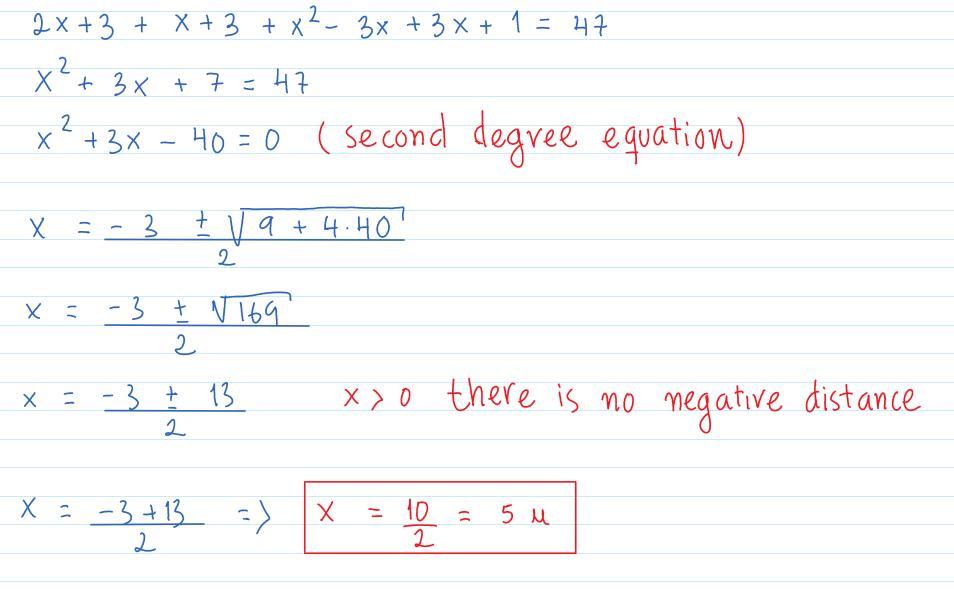 2x + 3 + x + 3 + x² - 3x + 3x + 1 = 47
x² + 3x + 7 = 47
x² + 3x - 40 = 0 (second degree equation)
x = (-3 ± √(9 + 4·40)) / 2
x = (-3 ± √169) / 2
x = (-3 ± 13) / 2 x > 0 there is no negative distance
x = (-3 + 13) / 2 => x = 10/2 = 5 u